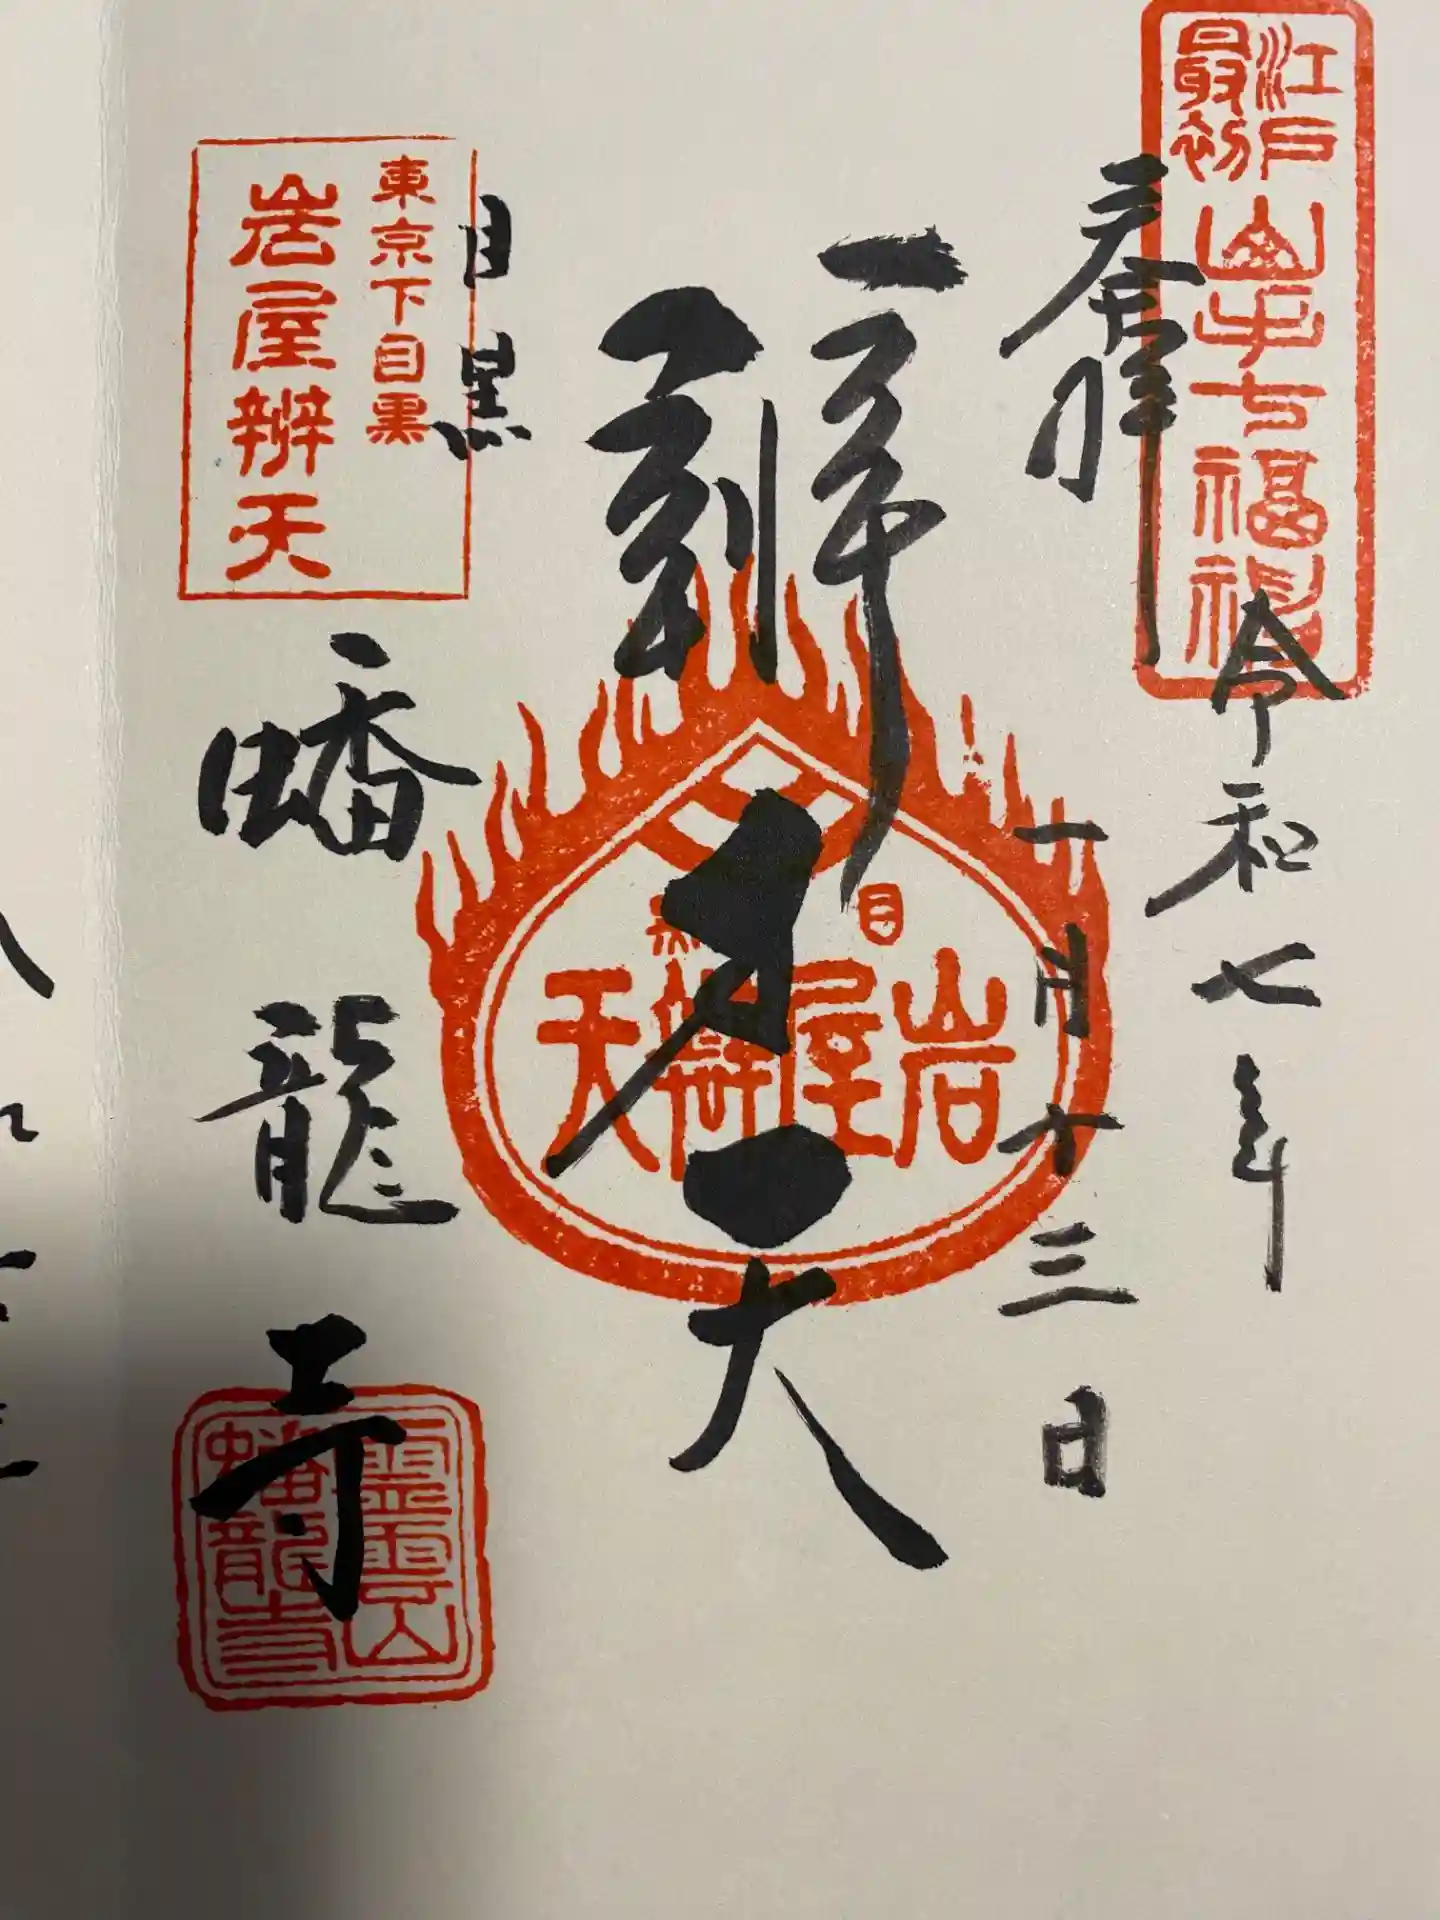 江戸最初
山手七福神
奉拝
令和七年
一月十三日
辨才天
目黒
岩屋辨天
東京下目黒
岩屋辨天
目黒
蟠龍寺
霊雲山
蟠龍寺